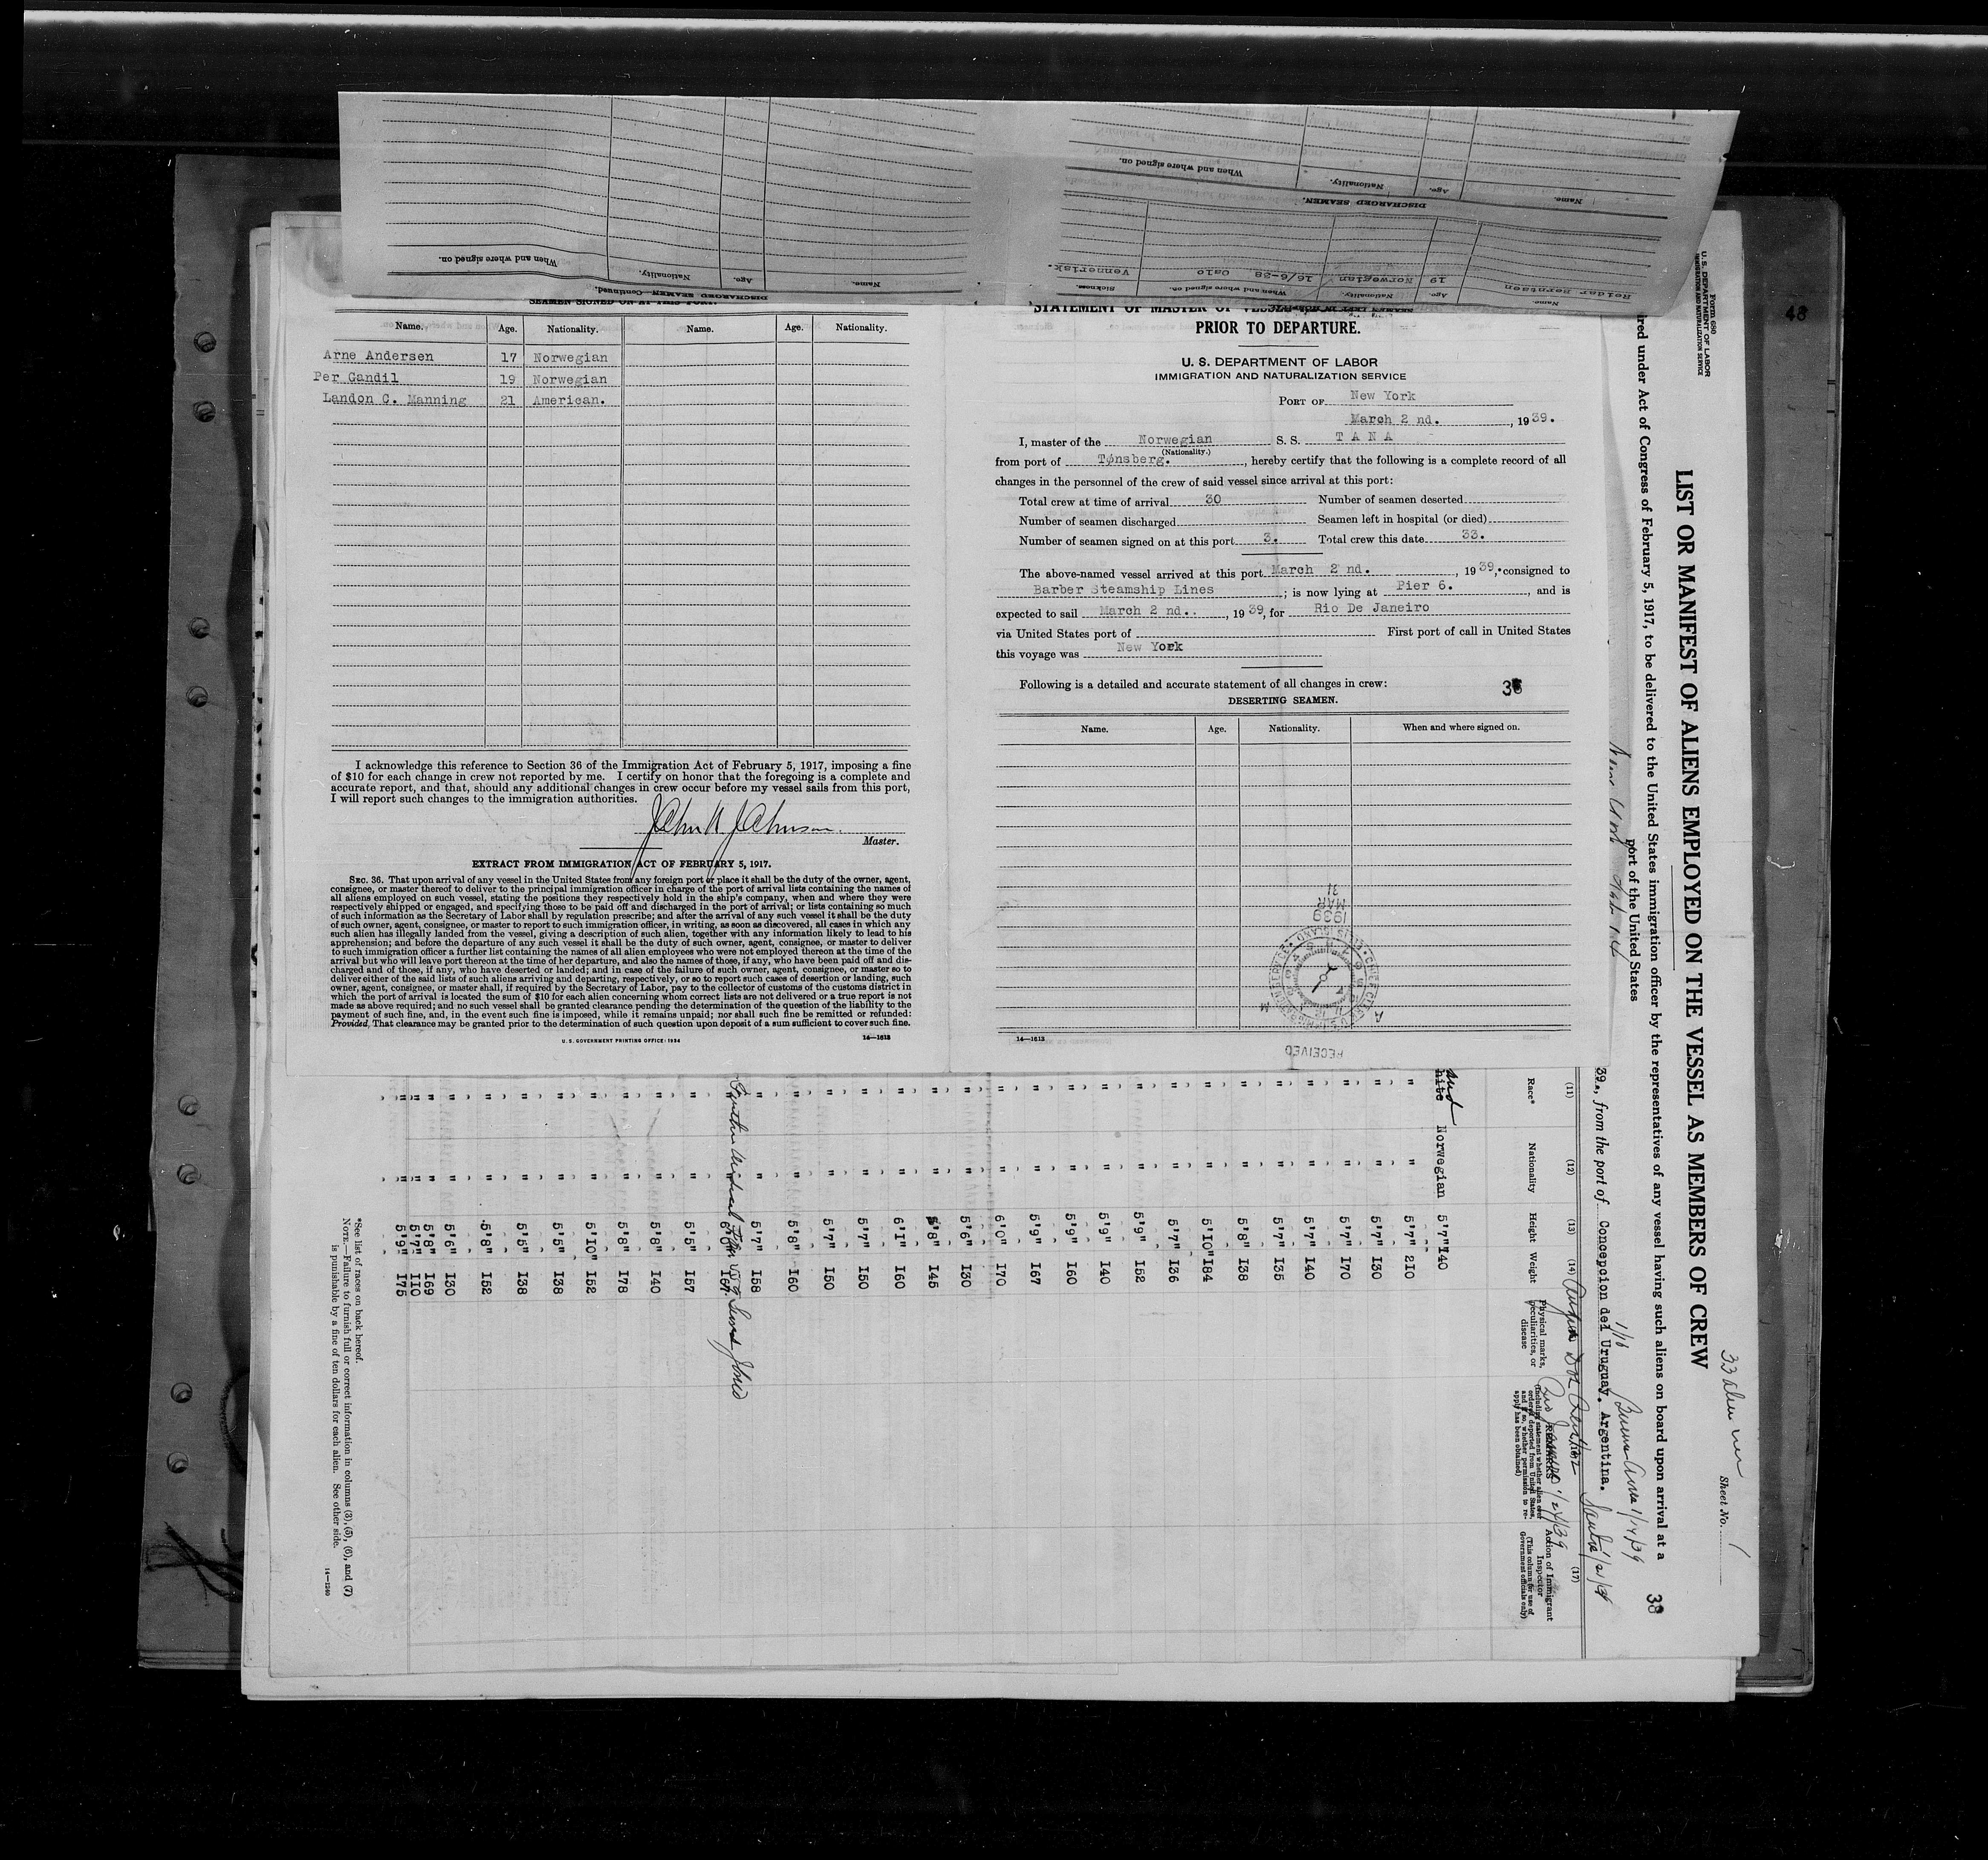 When and where signed on.
Nationality.
Age.
Name.
DISCHARGED SEAMEN—Continued.
When and where signed on.
Nationality.
Age.
Name.
DISCHARGED SEAMEN.
Vennerisk.
16/6-38 Oslo
Norwegian
19
Reidar Berntsen
Sickness.
When and where signed on.
Nationality.
Age.
Name.
SEAMEN SIGNED ON AT THIS PORT.
Name. Age. Nationality. Name. Age. Nationality.
Arne Andersen 17 Norwegian
Per Gandil 19 Norwegian
Landon C. Manning 21 American.
I acknowledge this reference to Section 36 of the Immigration Act of February 5, 1917, imposing a fine
of $10 for each change in crew not reported by me. I certify on honor that the foregoing is a complete and
accurate report, and that, should any additional changes in crew occur before my vessel sails from this port,
I will report such changes to the immigration authorities.
Master.
EXTRACT FROM IMMIGRATION ACT OF FEBRUARY 5, 1917.
SEC. 36. That upon arrival of any vessel in the United States from any foreign port or place it shall be the duty of the owner, agent,
consignee, or master thereof to deliver to the principal immigration officer in charge of the port of arrival lists containing the names of
all aliens employed on such vessel, stating the positions they respectively hold in the ship's company, when and where they were
respectively shipped or engaged, and specifying those to be paid off and discharged in the port of arrival; or lists containing so much
of such information as the Secretary of Labor shall by regulation prescribe; and after the arrival of any such vessel it shall be the duty
of such owner, agent, consignee, or master to report to such immigration officer, in writing, as soon as discovered, all cases in which any
such alien has illegally landed from the vessel, giving a description of such alien, together with any information likely to lead to his
apprehension; and before the departure of any such vessel it shall be the duty of such owner, agent, consignee, or master to deliver
to such immigration officer a further list containing the names of all alien employees who were not employed thereon at the time of the
arrival but who will leave port thereon at the time of her departure, and also the names of those, if any, who have been paid off and dis-
charged and of those, if any, who have deserted or landed; and in case of the failure of such owner, agent, consignee, or master so to
deliver either of the said lists of such aliens arriving and departing, respectively, or so to report such cases of desertion or landing, such
owner, agent, consignee, or master shall, if required by the Secretary of Labor, pay to the collector of customs of the customs district in
which the port of arrival is located the sum of $10 for each alien concerning whom correct lists are not delivered or a true report is not
made as above required; and no such vessel shall be granted clearance pending the determination of the question of the liability to the
payment of such fine, and, in the event such fine is imposed, while it remains unpaid; nor shall such fine be remitted or refunded:
Provided, That clearance may be granted prior to the determination of such question upon deposit of a sum sufficient to cover such fine.
U. S. GOVERNMENT PRINTING OFFICE: 1934 14—1613
STATEMENT OF MASTER OF VESSEL
PRIOR TO DEPARTURE.
U. S. DEPARTMENT OF LABOR
IMMIGRATION AND NATURALIZATION SERVICE
PORT OF New York
March 2 nd., 1939.
I, master of the Norwegian S. S. TANA
(Nationality.)
from port of Tønsberg., hereby certify that the following is a complete record of all
changes in the personnel of the crew of said vessel since arrival at this port:
Total crew at time of arrival 30 Number of seamen deserted
Number of seamen discharged Seamen left in hospital (or died)
Number of seamen signed on at this port 3. Total crew this date 33.
The above-named vessel arrived at this port March 2 nd., 1939, consigned to
Barber Steamship Lines; is now lying at Pier 6., and is
expected to sail March 2 nd.., 1939, for Rio De Janeiro
via United States port of First port of call in United States
this voyage was New York
Following is a detailed and accurate statement of all changes in crew:
DESERTING SEAMEN.
Name. Age. Nationality. When and where signed on.
1939
MAR
31
CHIEF CLERK U.S. IMMIGRATION SERVICE ELLIS ISLAND
RECEIVED
14—1613
48
Form 680
U. S. DEPARTMENT OF LABOR
IMMIGRATION AND NATURALIZATION SERVICE
Sheet No. 1
LIST OR MANIFEST OF ALIENS EMPLOYED ON THE VESSEL AS MEMBERS OF CREW
38
red under Act of Congress of February 5, 1917, to be delivered to the United States immigration officer by the representatives of any vessel having such aliens on board upon arrival at a
port of the United States
39., from the port of Concepcion del Uruguay. Argentina.
Buenos Aires 1/14/39
Rio Janeiro 1/24/39
(11) (12) (13) (14) (17)
Race* Nationality Height Weight Physical marks, peculiarities, or disease
REMARKS
(Including statement whether alien ever ordered deported from United States, and if so, whether permission to reapply has been obtained)
Action of Immigrant Inspector
(This column for use of Government officials only)
Norwegian 5'7" 140
" " 5'7" 210
" " 5'7" 130
" " 5'7" 170
" " 5'7" 140
" " 5'7" 135
" " 5'8" 138
" " 5'10" 184
" " 5'7" 136
" " 5'9" 152
" " 5'9" 140
" " 5'9" 160
" " 5'9" 167
" " 6'0" 170
" " 5'6" 130
" " 5'8" 145
" " 6'1" 160
" " 5'7" 150
" " 5'7" 150
" " 5'8" 160
" " 5'7" 158
" " 5'5" 157
" " 5'8" 140
" " 5'8" 178
" " 5'10" 152
" " 5'5" 138
" " 5'5" 138
" " 5'8" 152
" " 5'6" 130
" " 5'8" 169
" " 5'7" 110
" " 5'9" 175
*See list of races on back hereof.
NOTE.—Failure to furnish full or correct information in columns (3), (5), (6), and (7)
is punishable by a fine of ten dollars for each alien. See other side.
14—1240